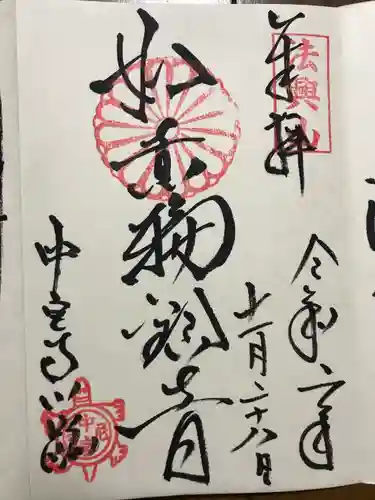 奉拝
法興山
令和二年
十一月二十八日
如意輪観世音
中宮寺門跡